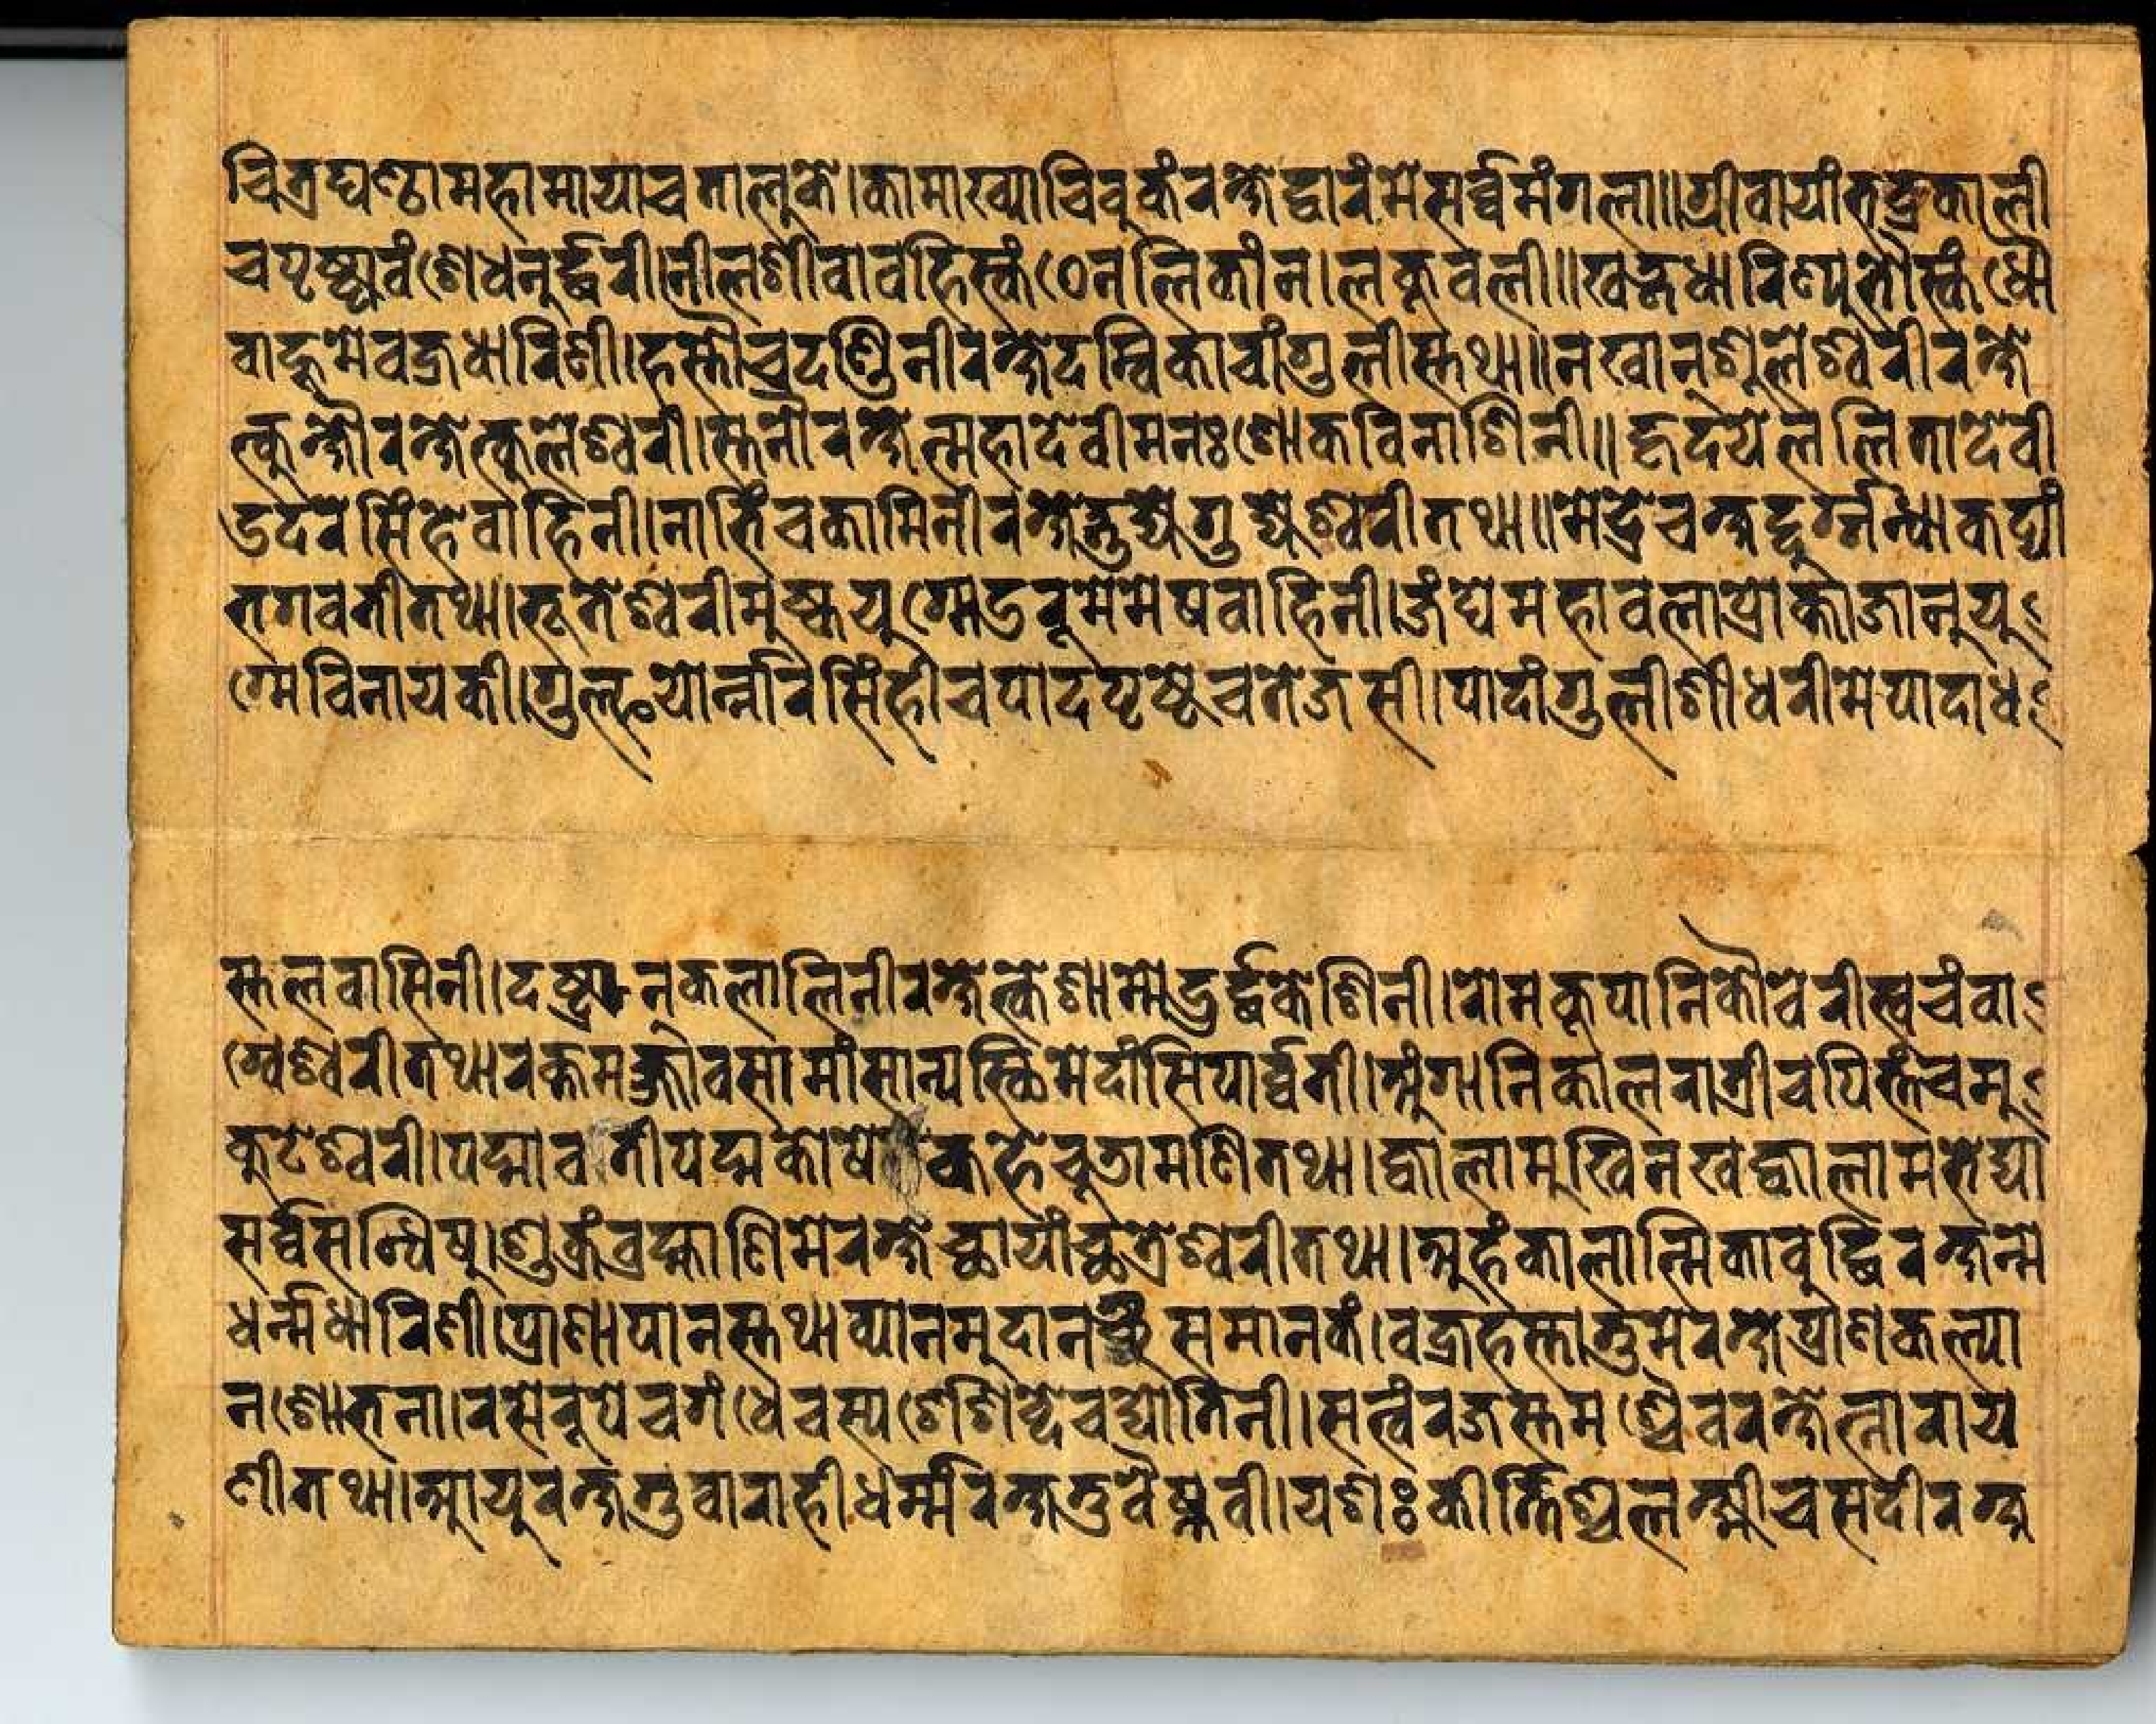 चित्रघण्ठामहामायाचतालुके।कामाख्याचिवुकंरक्षेद्वारंमेसर्व्वमंगला॥ग्रीवायांभद्रकाली
चपृष्ठवंशेधनुर्द्धरी।नीलग्रीवावहिस्कंठेनलिकांनलकूवली॥खड्गधारिण्युभौस्कंधौ
वाहूमेवज्रधारिणी।हस्तौचदण्डिनीरक्षेदम्विकाचांगुलीस्तथा॥नखान्शूलेश्वरीरक्षे
त्कुक्षौरक्षेत्कुलेश्वरी।स्तनौरक्षेत्महादेवीमनःशोकविनाशिनी॥हृदयेललितादेवी
उदरेसिंहवाहिनी।नाभिंचकामिनीरक्षेत्गुह्येगुह्येश्वरीतथा॥मेढ्रेचरक्षदुर्ग्गन्धाकट्यां
भगवतीतथा।भूतेश्वरीमुष्कयुग्मेउरूमेमेषवाहिनी।जंघेमहावलाप्रोक्ताजानुयु
ग्मेविनायकी।गुल्फयोर्न्नारसिंहीचपादपृष्ठेचतेजसी।पादांगुलीश्रीधरीमेपादाध
स्तलवासिनी।दंष्ट्रान्कलालिनीरक्षेत्केशामोउर्द्धकेशिनी।रोमकूपानिकौवेरीत्वचंवा
ग्वेश्वरीतथा।रक्तमज्जावसामांसान्यस्थिमेदांसिपार्व्वती।अंगानिकालरात्रीचपित्तंचमु
कुटेश्वरी।पद्मावतीपद्मकोषेकफेचूडामणितथा।ज्वालामुखिनखज्वालामभेद्या
सर्व्वसन्धिषु।शुक्रंव्रह्माणिमेरक्षेच्छायांच्छत्रेश्वरीतथा।अहंकालात्मिकावुद्धिरक्षन्मे
धर्म्मधारिणी।प्राणापानस्तथाव्यानमुदानञ्चसमानकं।वज्रहस्तातुमेरक्षेप्राणकल्या
नशोभना।रसेरूपेचगंधेचस्पशेशिव्देचद्योतिनी।सत्त्वंरजस्तमश्चैवरक्षेत्नाराय
णीतथा।आयुरक्षतुवाराहीधर्म्मरक्षतुवैष्णवी।यशःकीर्त्तिश्चलक्ष्मीचसदारक्ष